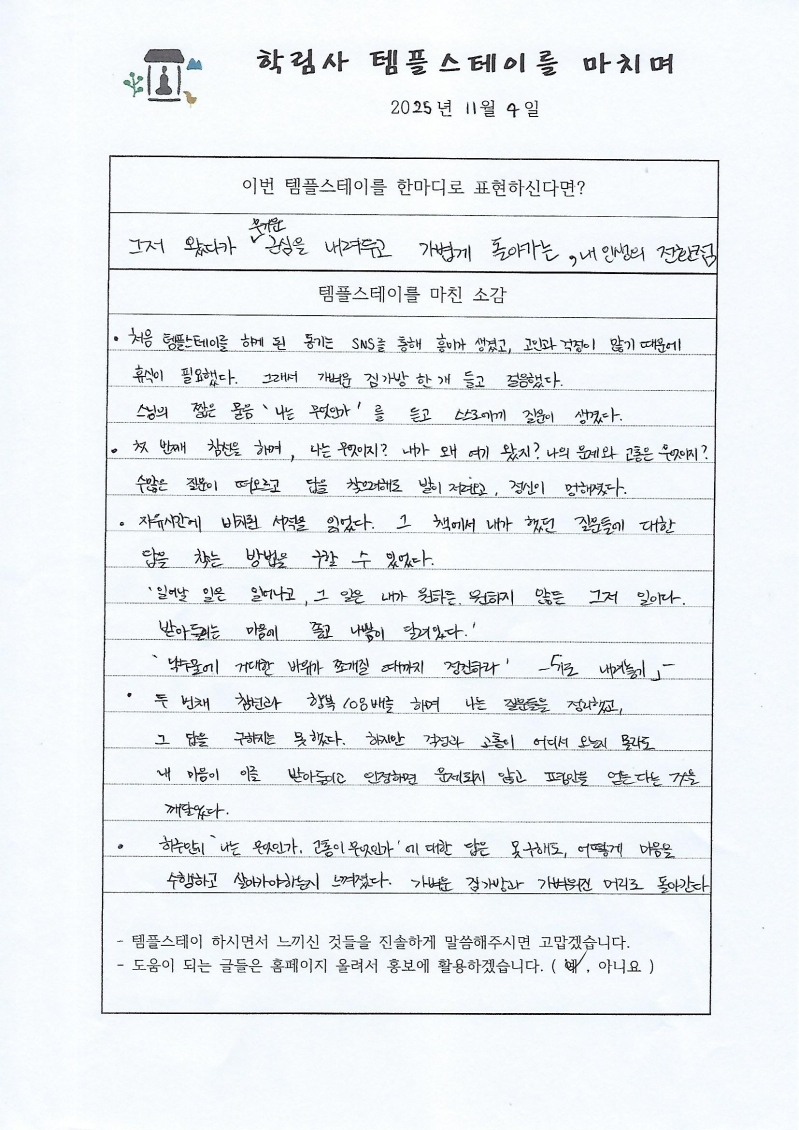 학림사 템플스테이를 마치며
2025년 11월 4일
이번 템플스테이를 한마디로 표현하신다면?
무거운
그저 왔다가 근심을 내려두고 가볍게 돌아가는, 내 인생의 전환점
템플스테이를 마친 소감
• 처음 템플스테이를 하게 된 동기는 SNS를 통해 흥미가 생겼고, 고민과 걱정이 많기 때문에
휴식이 필요했다. 그래서 가벼운 짐가방 한 개 들고 걸음했다.
스님의 짧은 물음 '나는 무엇인가' 를 듣고 스스로에게 질문이 생겼다.
• 첫 번째 참선을 하며, 나는 무엇이지? 내가 왜 여기 왔지? 나의 문제와 고통은 무엇이지?
수많은 질문이 떠오르고 답을 찾으려해도 발이 저려오고, 정신이 멍해졌다.
• 자유시간에 비치된 서적을 읽었다. 그 책에서 내가 했던 질문들에 대한
답을 찾는 방법을 구할 수 있었다.
'일어날 일은 일어나고, 그 일은 내가 원하든 원하지 않든 그저 일이다.
받아들이는 마음에 좋고 나쁨이 달려있다.'
'낙숫물에 거대한 바위가 쪼개질 때까지 정진하라' 기도 내려놓기」-
• 두 번째 참선과 행복 108배를 하며 나는 질문들을 정리했고,
그 답을 구하지는 못했다. 하지만 걱정과 고통이 어디서 오는지 몰라도
내 마음이 이를 받아들이고 인정하면 문제되지 않고 평안을 얻는다는 것을
깨달았다.
• 하룻만에 '나는 무엇인가. 고통이 무엇인가'에 대한 답은 못 구해도, 어떻게 마음을
수행하고 살아가야하는지 느껴졌다. 가벼운 짐가방과 가벼워진 머리로 돌아간다
- 템플스테이 하시면서 느끼신 것들을 진솔하게 말씀해주시면 고맙겠습니다.
- 도움이 되는 글들은 홈페이지 올려서 홍보에 활용하겠습니다. ( 예 , 아니요 )